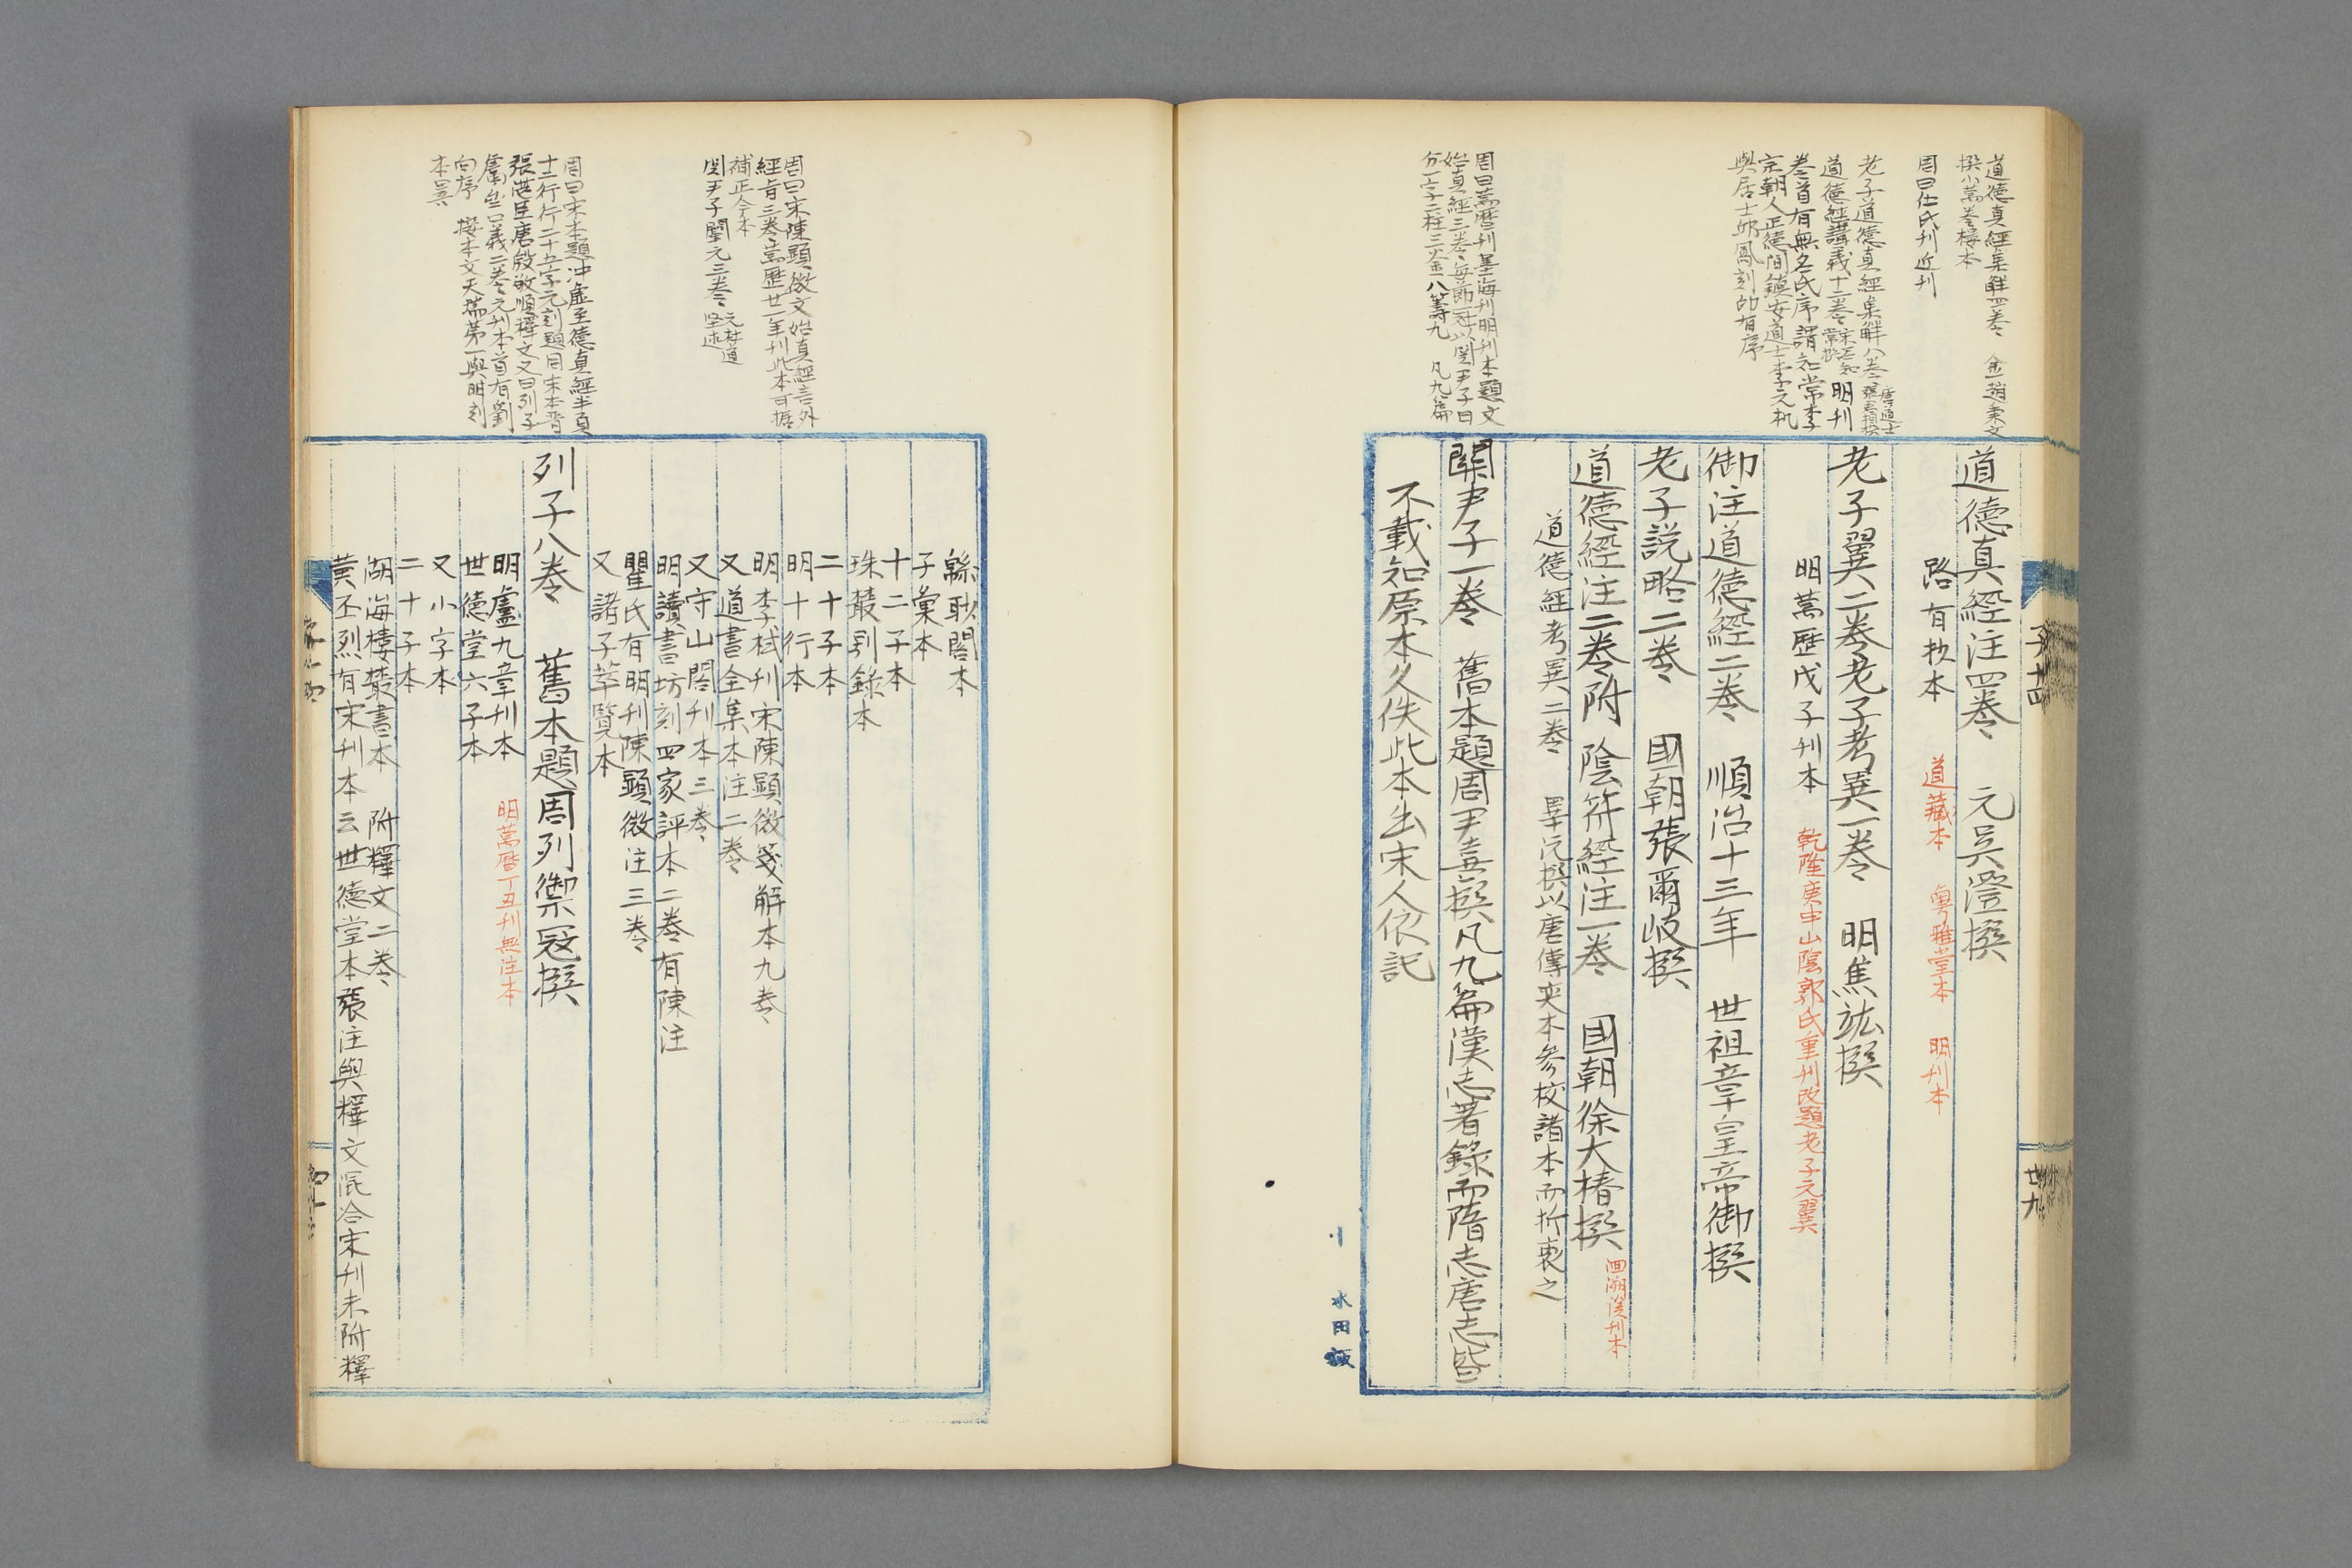 道德真經集解四卷 金趙秉文
撰小萬卷樓本
周曰仕氏刊近刊
老子道德真經集解八卷 唐道士張君相撰
道德經講義十二卷 宋呂知常撰 明刊
卷首有無名氏序謂知常李
宗朝人正德間鎮安道士李元机
與居士邵鳳刻的有序
周曰萬曆刊墨海刊明刊本題文
始真經三卷每節冠以関尹子曰
分一宇二柱三金八籌九 凡九篇
子十四
世九
道德真經注四卷 元吳澄撰
路有抄本 道藏本 粵雅堂本 明刊本
老子翼二卷老子考異一卷 明焦竑撰
明萬歷戊子刊本 乾隆庚申山陰郭氏重刊改題老子元翼
御注道德經二卷 順治十三年 世祖章皇帝御撰
老子説略二卷 國朝張爾岐撰
道德經注二卷附陰符經注一卷 國朝徐大椿撰 洄溯溪刊本
道德經考異二卷 畢沅撰以唐傅奕本參校諸本而折衷之
關尹子一卷 舊本題周尹喜撰凡九篇漢志著錄而隋志唐志皆
不載知原本久佚此本出宋人依託
周曰宋陳顯微文始真經言外
經旨三卷萬歷廿一年刊此本可據
補正今本
関尹子闡元三卷 元杜道堅述
周曰宋本題沖虛至德真經半頁
十二行行二十五字元刻題同宋本晉
張湛臣唐殷敬順釋文又曰列子
鬳齋口義二卷元刊本首有劉
向序 樓本文天瑞第一與明刻
本異
緜眇閣本
子彙本
十二子本
珠叢別錄本
二十子本
明十行本
明李栻刊宋陳顯微箋解本九卷
又道書全集本注二卷
又守山閣刊本三卷
明讀書坊刻四家評本二卷有陳注
瞿氏有明刊陳顯微注三卷
又諸子萃覽本
列子八卷 舊本題周列禦冠撰
明盧九章刊本 明萬曆丁丑刊無注本
世德堂六子本
又小字本
二十子本
湖海樓叢書本 附釋文二卷
黃丕烈有宋刊本云世德堂本張注與釋文混合宋刊未附釋
水田